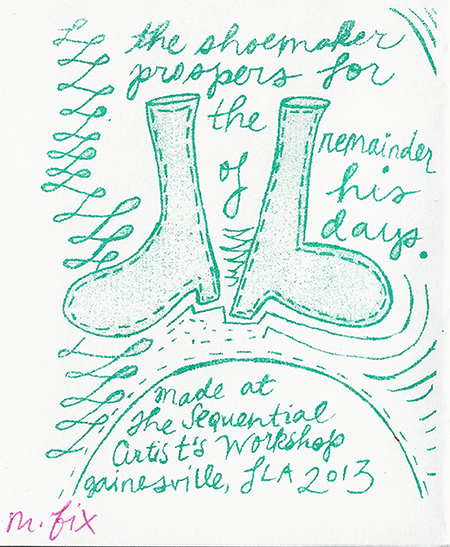 the shoemaker
prospers for
the
of
remainder
his
days.
made at
the Sequential
Artist's Workshop
gainesville, FLA 2013
m. fix